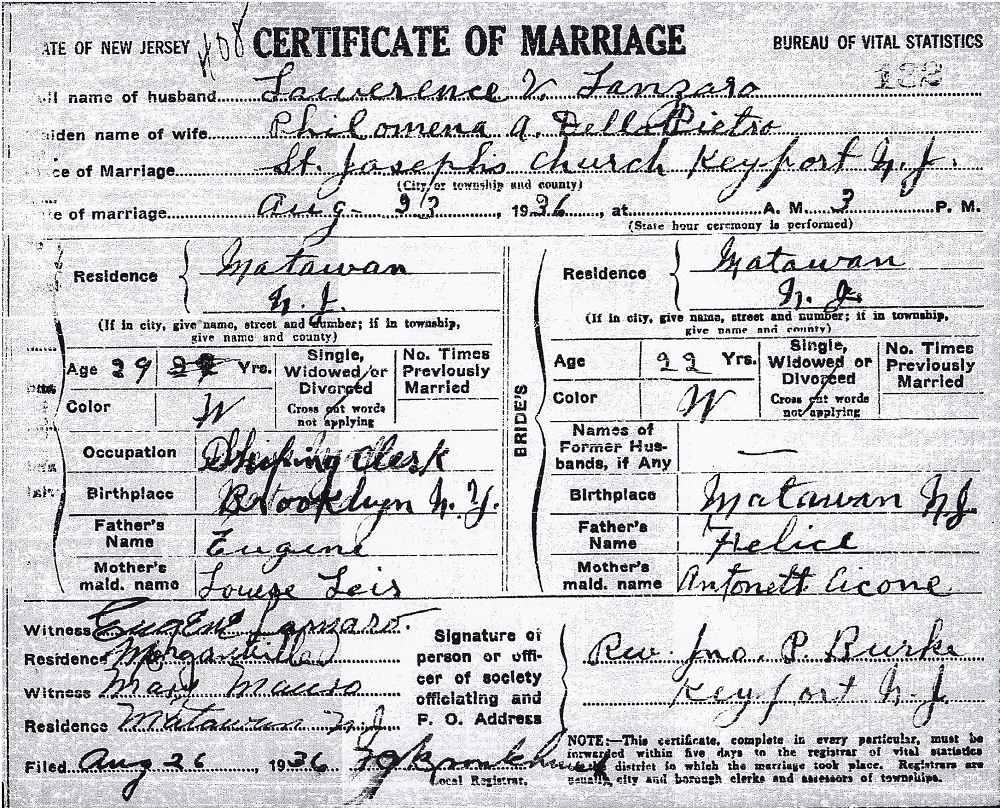 ATE OF NEW JERSEY 408 CERTIFICATE OF MARRIAGE BUREAU OF VITAL STATISTICS
132
name of husband Lawerence V. Lanzaro
iden name of wife Philomena A. Della Pietro
ce of Marriage St. Josephs Church Keyport N.J.
(City or township and county)
e of marriage Aug 23, 1936, at A. M. 3 P. M.
(State hour ceremony is performed)
Residence Matawan
N.J.
(If in city, give name, street and number; if in township,
give name and county)
Age 29 Yrs.
Single, Widowed or Divorced
Cross out words not applying
No. Times Previously Married
Color W
Occupation Shiping Clerk
Birthplace Brooklyn N.Y.
Father's Name Eugene
Mother's maid. name Louese Leis
BRIDE'S
Residence Matawan
N.J.
(If in city, give name, street and number; if in township,
give name and county)
Age 22 Yrs.
Single, Widowed or Divorced
Cross out words not applying
No. Times Previously Married
Color W
Names of Former Husbands, if Any —
Birthplace Matawan NJ
Father's Name Felice
Mother's maid. name Antonett Cicone
Witness Eugene Lanzaro.
Residence Morganville
Witness Mary Mauro
Residence Matawan N.J.
Signature of
person or offi-
cer of society
officiating and
P. O. Address
Rev. Jno. P. Burke
Keyport N.J.
Filed Aug 26, 1936
Local Registrar.
NOTE:—This certificate, complete in every particular, must be
forwarded within five days to the registrar of vital statistics
district in which the marriage took place. Registrars are
usually city and borough clerks and assessors of townships.